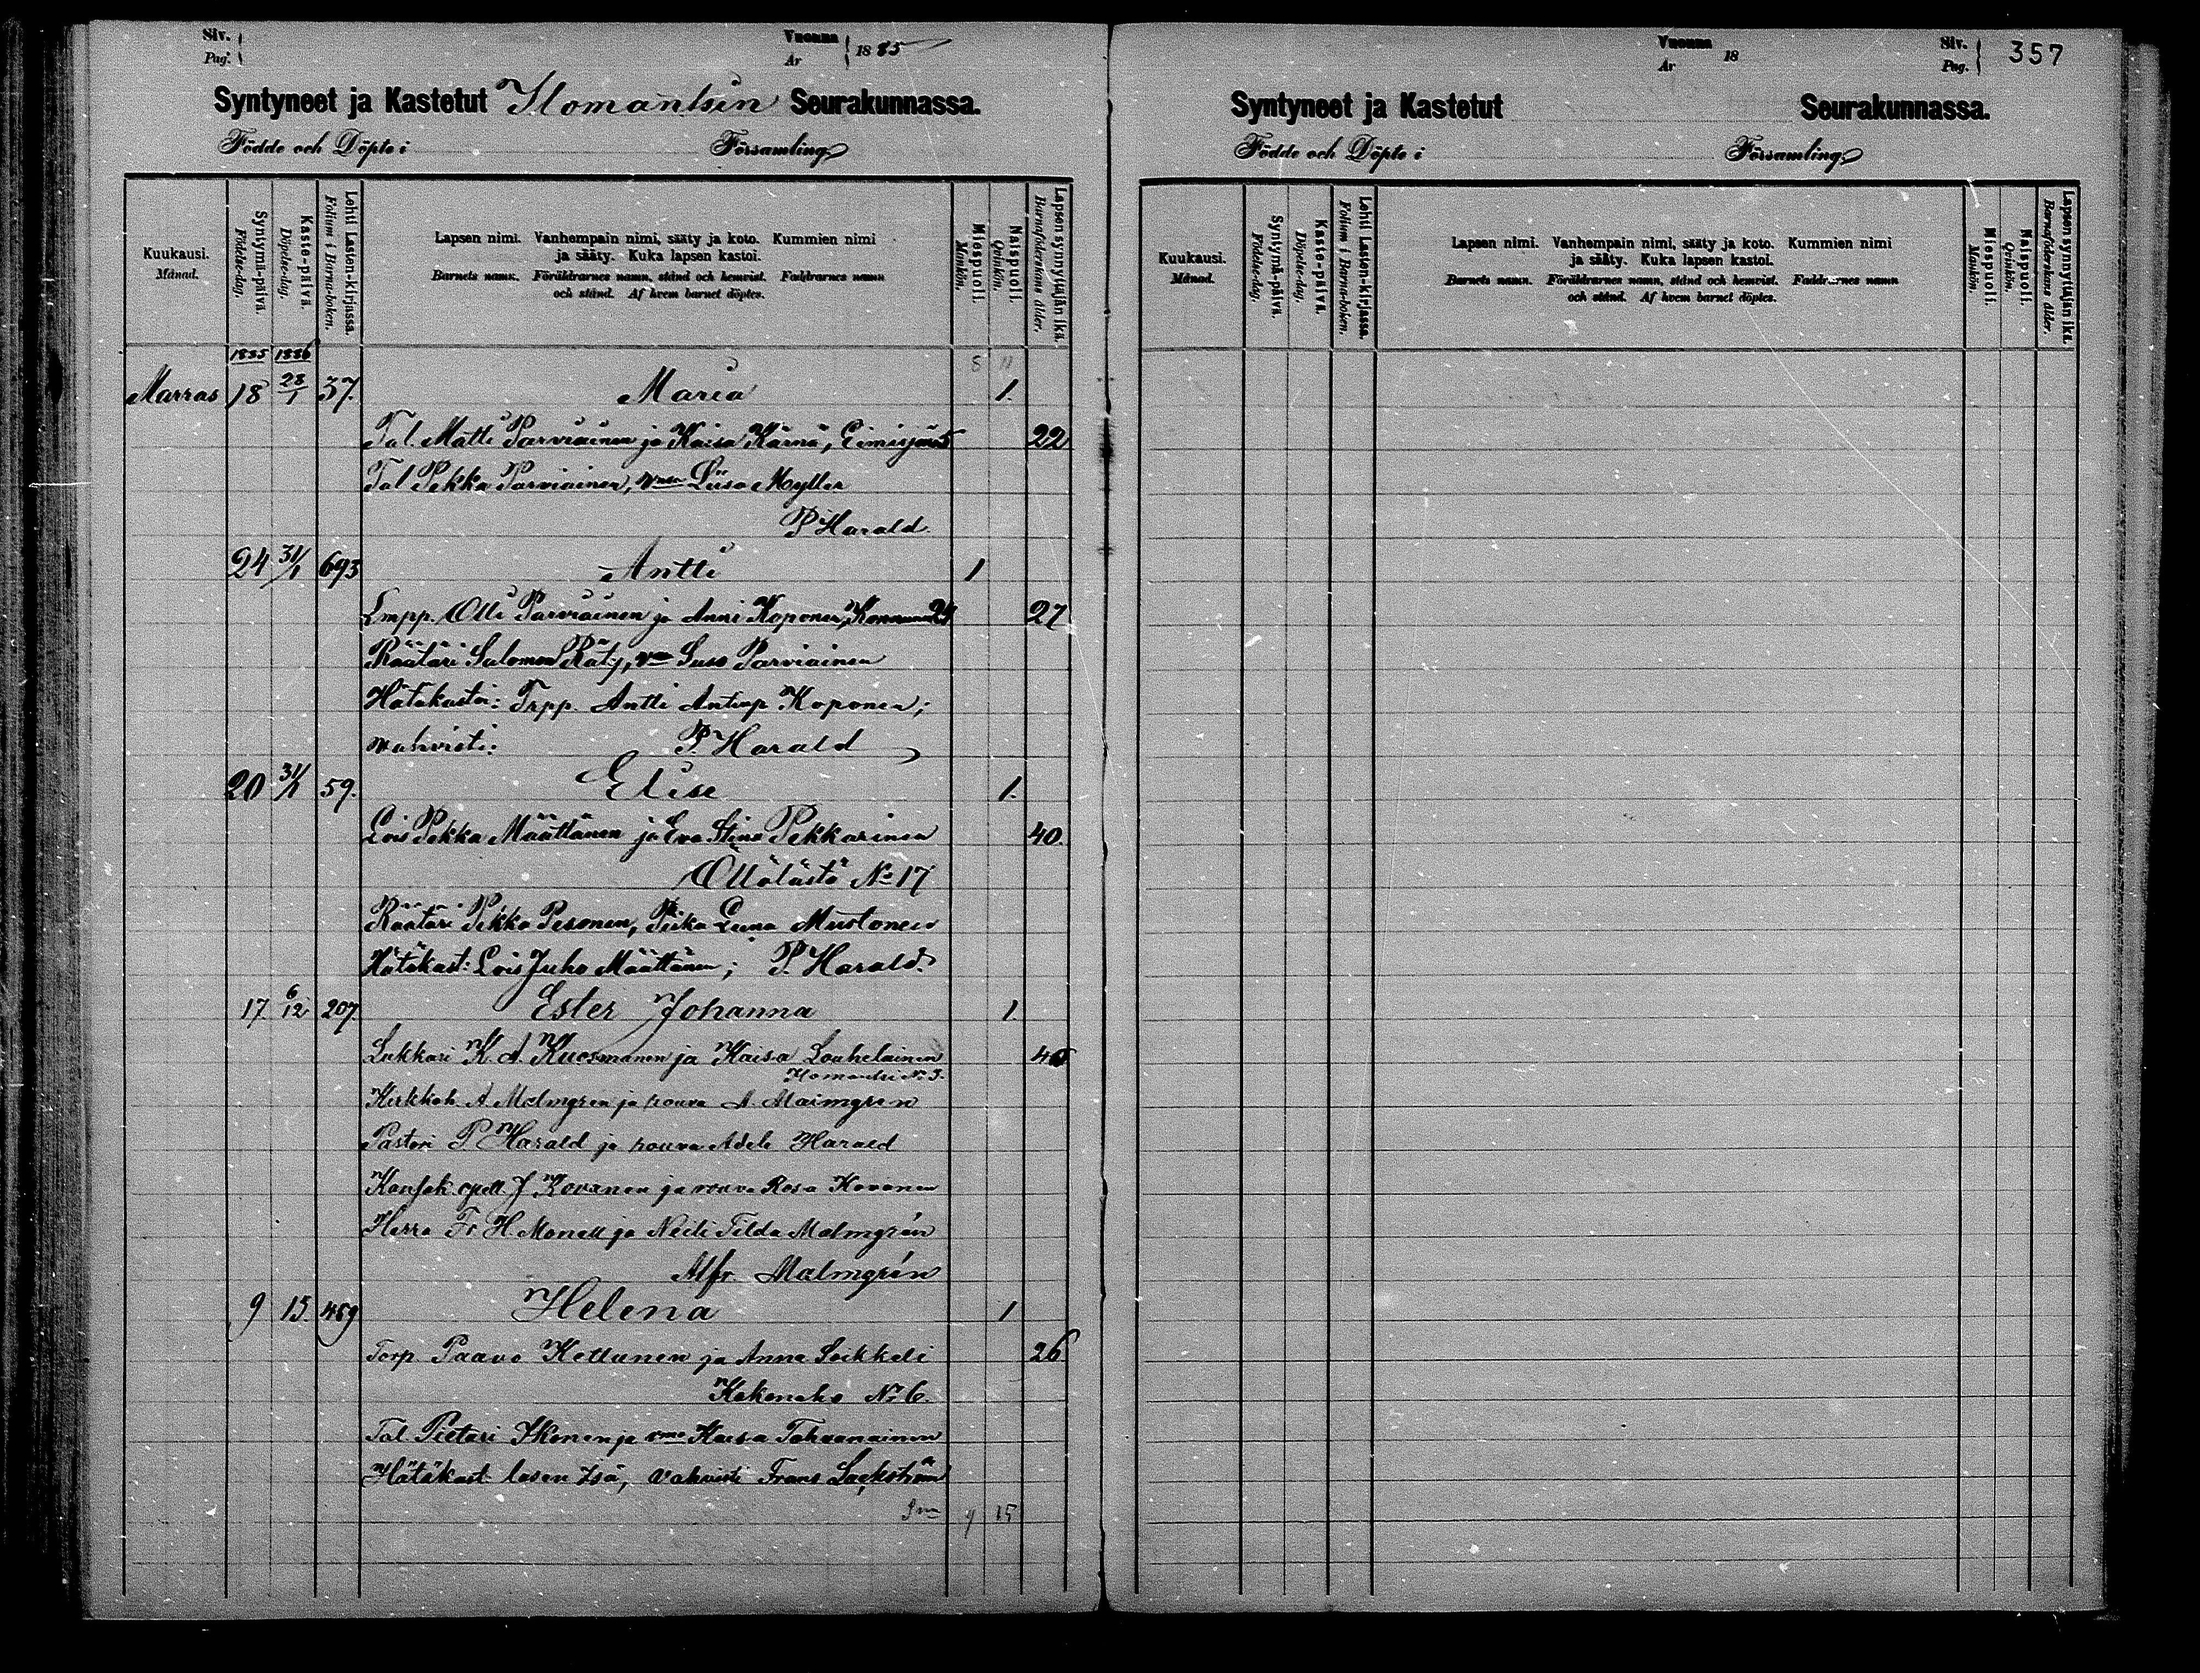 Siv. Pag. Vuonna År 1885
Syntyneet ja Kastetut Ilomantsin Seurakunnassa.
Födde och Döpte i Församling
Kuukausi. Månad.
Syntymä-päivä. Födelse-dag.
Kaste-päivä. Döpelse-dag.
Lehti Lasten-kirjassa. Folium i Barna-boken.
Lapsen nimi. Vanhempain nimi, sääty ja koto. Kummien nimi
ja sääty. Kuka lapsen kastoi.
Barnets namn. Föräldrarnes namn, stånd och hemvist. Faddrarnes namn
och stånd. Af hvem barnet döptes.
Miespuoli. Mankön.
Naispuoli. Qvinkön.
Lapsen synnyttäjän ikä. Barnaföderskans ålder.
1885 1886 8 11
Marras 18 28/1 37. Maria 1.
Tal Matti Parviainen ja Kaisa Kärnä, Eimisjärvi 5 22
Tal Pekka Parviainen, vmo Liisa Myller
P Harald.
24 31/1 693 Antti 1
Lmpp. Olli Parviainen ja Anni Koponen, 24 27
Räätäri Salomon Räty, vmo Parviainen
Hätäkastoi: Trpp. Antti Antinp Koponen;
vahvisti: P. Harald
20 31/1 59. Elise 1.
Lois Pekka Määttänen ja Eva Stina Pekkarinen 40.
Öllölästä No 17
Räätäri Pekka Pesonen, Piika Leena Mustonen
Hätäkast: Lois Juho Määttänen; P. Harald.
17. 6/12 207. Ester Johanna 1.
Lukkari K. A. Kuosmanen ja Kaisa Louhelainen
Ilomantsi No 3.
Kirkkoh. A Malmgren ja rouva A. Malmgren
Pastori P. Harald ja rouva Adele Harald
Kansak. opett. J Kovanen ja rouva Rosa Kovanen
Herra Fr H. Monell ja Neiti Tilda Malmgrén
Alfr. Malmgrén
9 15. 459 Helena 1
Torp Paavo Kettunen ja Anna Soikkeli 26
Kakonaho No 6.
Tal. Pietari Ikonen ja vmo Kaisa Tahvanainen
Hätäkast lasen Isä, vahvisti Frans Lackström
9 15
Vuonna År 18 Siv. Pag. 357
Syntyneet ja Kastetut Seurakunnassa.
Födde och Döpte i Församling
Kuukausi. Månad.
Syntymä-päivä. Födelse-dag.
Kaste-päivä. Döpelse-dag.
Lehti Lasten-kirjassa. Folium i Barna-boken.
Lapsen nimi. Vanhempain nimi, sääty ja koto. Kummien nimi
ja sääty. Kuka lapsen kastoi.
Barnets namn. Föräldrarnes namn, stånd och hemvist. Faddrarnes namn
och stånd. Af hvem barnet döptes.
Miespuoli. Mankön.
Naispuoli. Qvinkön.
Lapsen synnyttäjän ikä. Barnaföderskans ålder.